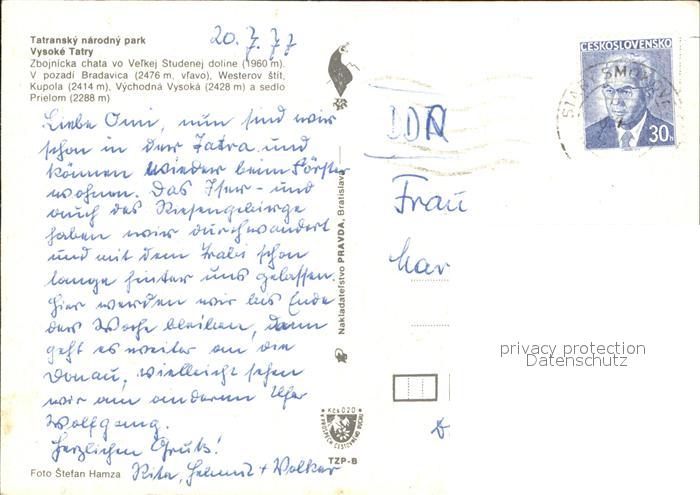 Tatranský národný park
Vysoké Tatry
Zbojnícka chata vo Veľkej Studenej doline (1960 m).
V pozadí Bradavica (2476 m, vľavo), Westerov štít,
Kupola (2414 m), Východná Vysoká (2428 m) a sedlo
Prielom (2288 m)
20.7.77
Liebe Omi, nun sind wir
schon in der Tatra und
können wieder beim Förster
wohnen. Das Iser- und
auch das Riesengebirge
haben wir durchwandert
und mit dem Trabi schon
lange hinter uns gelassen.
Hier werden wir bis Ende
der Woche bleiben, dann
geht es weiter an die
Donau, vielleicht sehen
wir am anderen Ufer
Wolfgang.
Herzlichen Gruß!
Rita, Helmut + Volker
Foto Štefan Hamza
Nakladateľstvo PRAVDA, Bratislava
Kčs 0,20
TZP-B
ČESKOSLOVENSKO
30h
DDR
Frau
Mar
privacy protection
Datenschutz